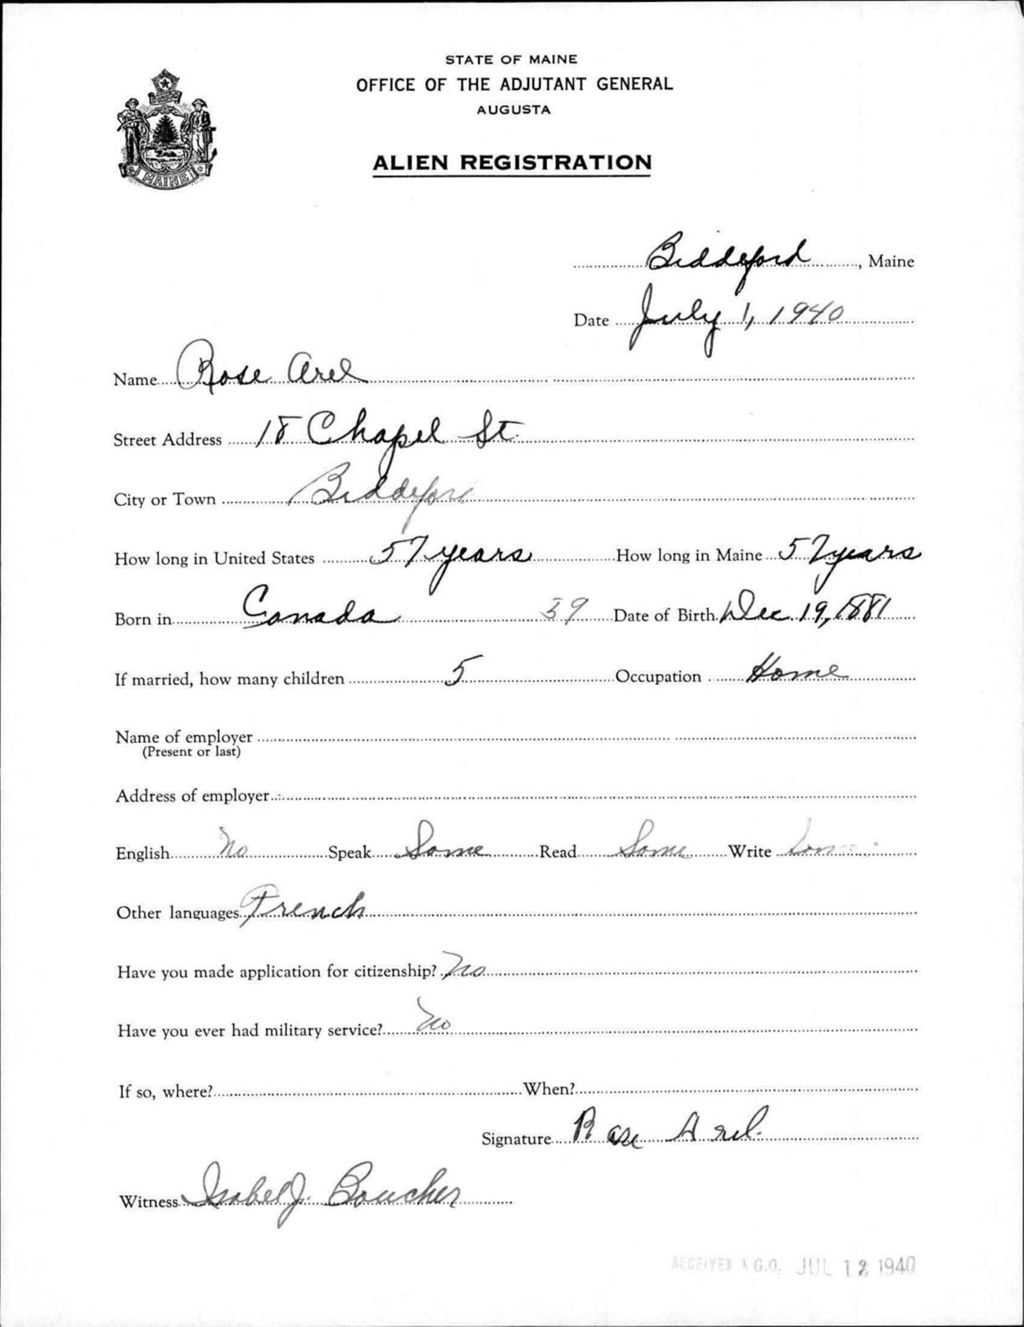 STATE OF MAINE
OFFICE OF THE ADJUTANT GENERAL
AUGUSTA
MAINE
ALIEN REGISTRATION
Biddeford, Maine
Date July 1, 1940
Name Rose Arel
Street Address 18 Chapel St.
City or Town Biddeford
How long in United States 57 years How long in Maine 57 years
Born in Canada 39 Date of Birth Dec. 19, 1881
If married, how many children 5 Occupation Home
Name of employer
(Present or last)
Address of employer
English No Speak Some Read Some Write Some
Other languages French
Have you made application for citizenship? No
Have you ever had military service? No
If so, where? When?
Signature Rose Arel.
Witness Isabel J. Boucher
RECEIVED A.G.O. JUL 12 1940